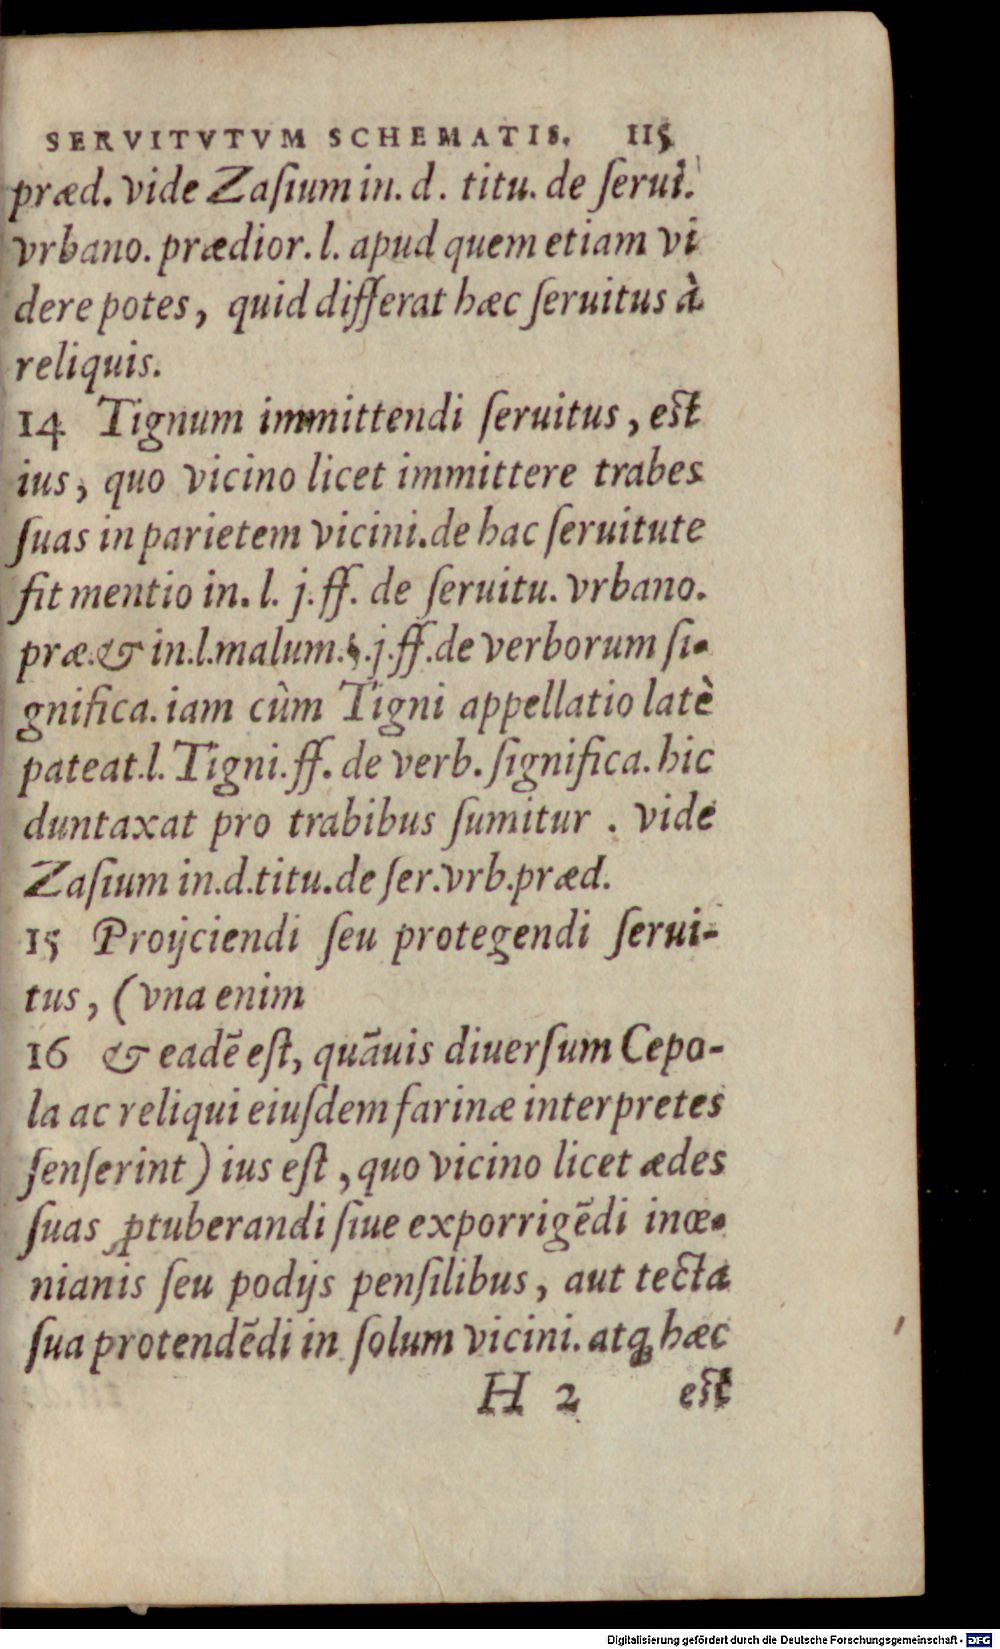 SERVITVTVM SCHEMATIS. 115
præd. vide Zaſium in. d. titu. de ſerui.
vrbano. prædior. l. apud quem etiam vi
dere potes, quid differat hæc ſeruitus à
reliquis.
14 Tignum immittendi ſeruitus, est
ius, quo vicino licet immittere trabes
ſuas in parietem vicini. de hac ſeruitute
fit mentio in. l. j. ff. de ſeruitu. vrbano.
præ. & in. l. malum. §. j. ff. de verborum ſi-
gnifica. iam cùm Tigni appellatio latè
pateat. l. Tigni. ff. de verb. ſignifica. hic
duntaxat pro trabibus ſumitur . vide
Zaſium in. d. titu. de ſer. vrb. præd.
15 Proijciendi ſeu protegendi ſerui-
tus, (vna enim
16 & eadē eſt, quāuis diuerſum Cepo-
la ac reliqui eiuſdem farinæ interpretes
ſenſerint) ius eſt, quo vicino licet ædes
ſuas ꝓtuberandi ſiue exporrigēdi inœ-
nianis ſeu podijs penſilibus, aut tecta
ſua protendēdi in ſolum vicini. atqꝫ hæc
H 2 est
Digitalisierung gefördert durch die Deutsche Forschungsgemeinschaft - DFG